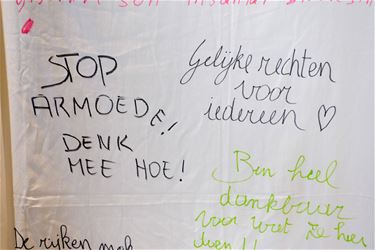 STOP
ARMOEDE!
DENK
MEE HOE!
Gelijke rechten
voor
iedereen ♡
Ben heel
dankbaar
voor wat ze hier
doen!!
De rijken